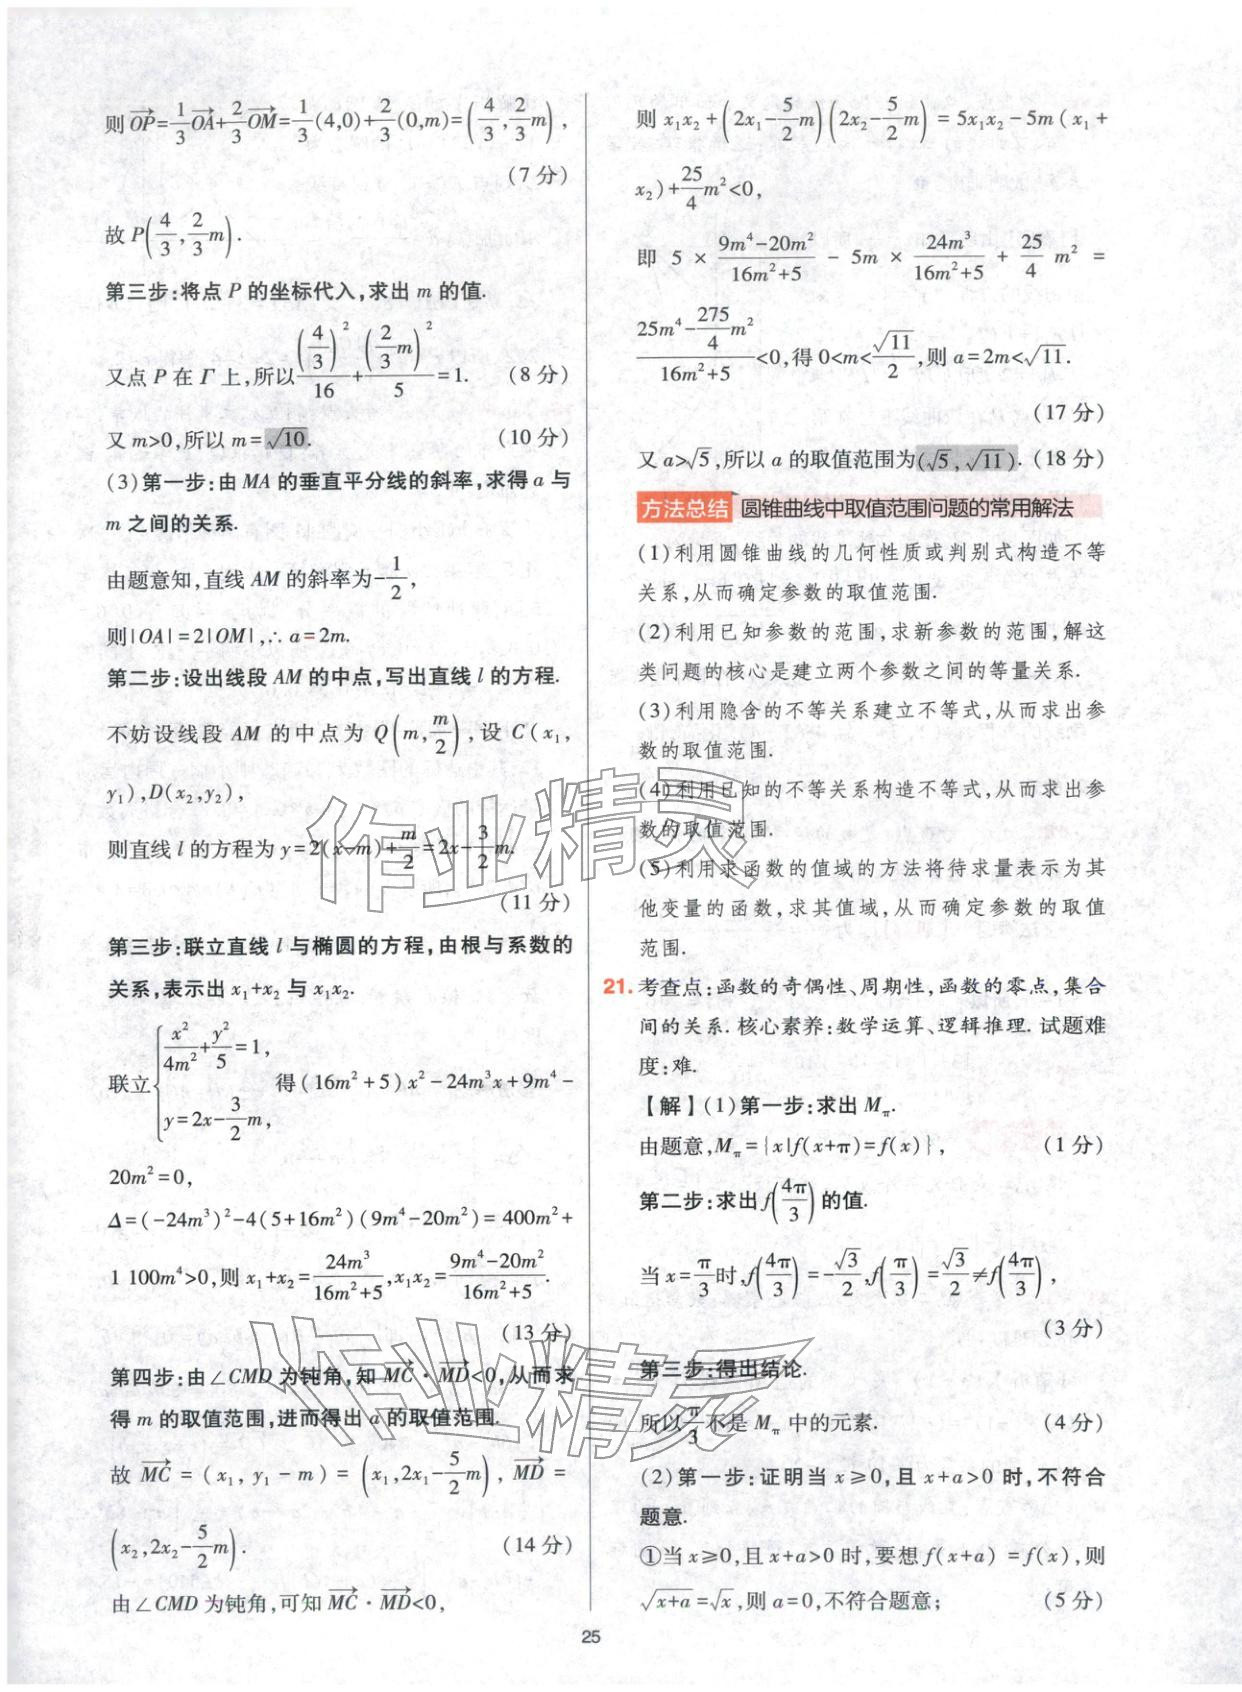 则 $\overrightarrow{OP}=\frac{1}{3}\overrightarrow{OA}+\frac{2}{3}\overrightarrow{OM}=\frac{1}{3}(4,0)+\frac{2}{3}(0,m)=\left(\frac{4}{3},\frac{2}{3}m\right)$,
(7 分)
故 $P\left(\frac{4}{3},\frac{2}{3}m\right)$.
第三步:将点 P 的坐标代入,求出 m 的值.
又点 P 在 Γ 上,所以 $\frac{\left(\frac{4}{3}\right)^2}{16}+\frac{\left(\frac{2}{3}m\right)^2}{5}=1$. (8 分)
又 m>0,所以 m=$\sqrt{10}$. (10 分)
(3)第一步:由 MA 的垂直平分线的斜率,求得 a 与
m 之间的关系.
由题意知,直线 AM 的斜率为$-\frac{1}{2}$,
则|OA|=2|OM|,∴a=2m.
第二步:设出线段 AM 的中点,写出直线 l 的方程.
不妨设线段 AM 的中点为 $Q\left(m,\frac{m}{2}\right)$,设 C(x₁,
y₁),D(x₂,y₂),
则直线 l 的方程为 $y=2(x-m)+\frac{m}{2}=2x-\frac{3}{2}m$.
(11 分)
第三步:联立直线 l 与椭圆的方程,由根与系数的
关系,表示出 x₁+x₂ 与 x₁x₂.
联立 $\begin{cases}\frac{x^2}{4m^2}+\frac{y^2}{5}=1,\\y=2x-\frac{3}{2}m,\end{cases}$ 得(16m²+5)x²-24m³x+9m⁴-
20m²=0,
Δ=(-24m³)²-4(5+16m²)(9m⁴-20m²)=400m²+
1 100m⁴>0,则 $x_1+x_2=\frac{24m^3}{16m^2+5}$,$x_1x_2=\frac{9m^4-20m^2}{16m^2+5}$.
(13 分)
第四步:由∠CMD 为钝角,知 $\overrightarrow{MC}\cdot\overrightarrow{MD}<0$,从而求
得 m 的取值范围,进而得出 a 的取值范围.
故 $\overrightarrow{MC}=(x_1,y_1-m)=\left(x_1,2x_1-\frac{5}{2}m\right)$,$\overrightarrow{MD}=$
$\left(x_2,2x_2-\frac{5}{2}m\right)$. (14 分)
由∠CMD 为钝角,可知 $\overrightarrow{MC}\cdot\overrightarrow{MD}<0$,
则 $x_1x_2+\left(2x_1-\frac{5}{2}m\right)\left(2x_2-\frac{5}{2}m\right)=5x_1x_2-5m(x_1+$
$x_2)+\frac{25}{4}m^2<0$,
即 $5\times\frac{9m^4-20m^2}{16m^2+5}-5m\times\frac{24m^3}{16m^2+5}+\frac{25}{4}m^2=$
$\frac{25m^4-\frac{275}{4}m^2}{16m^2+5}<0$,得 $0<m<\frac{\sqrt{11}}{2}$,则 $a=2m<\sqrt{11}$.
(17 分)
又 a>$\sqrt{5}$,所以 a 的取值范围为($\sqrt{5}$,$\sqrt{11}$). (18 分)
方法总结 圆锥曲线中取值范围问题的常用解法
(1)利用圆锥曲线的几何性质或判别式构造不等
关系,从而确定参数的取值范围.
(2)利用已知参数的范围,求新参数的范围,解这
类问题的核心是建立两个参数之间的等量关系.
(3)利用隐含的不等关系建立不等式,从而求出参
数的取值范围.
(4)利用已知的不等关系构造不等式,从而求出参
数的取值范围.
(5)利用求函数的值域的方法将待求量表示为其
他变量的函数,求其值域,从而确定参数的取值
范围.
21. 考查点:函数的奇偶性、周期性,函数的零点,集合
间的关系.核心素养:数学运算、逻辑推理.试题难
度:难.
【解】(1)第一步:求出 $M_\pi$.
由题意,$M_\pi$={x|f(x+π)=f(x)}, (1 分)
第二步:求出 $f\left(\frac{4\pi}{3}\right)$ 的值.
当 $x=\frac{\pi}{3}$时,$f\left(\frac{4\pi}{3}\right)=-\frac{\sqrt{3}}{2}$,$f\left(\frac{\pi}{3}\right)=\frac{\sqrt{3}}{2}\neq f\left(\frac{4\pi}{3}\right)$,
(3 分)
第三步:得出结论.
所以$\frac{\pi}{3}$不是 $M_\pi$ 中的元素. (4 分)
(2)第一步:证明当 x≥0,且 x+a>0 时,不符合
题意.
①当 x≥0,且 x+a>0 时,要想 f(x+a)=f(x),则
$\sqrt{x+a}=\sqrt{x}$,则 a=0,不符合题意; (5 分)
25
作业精灵
作业精灵